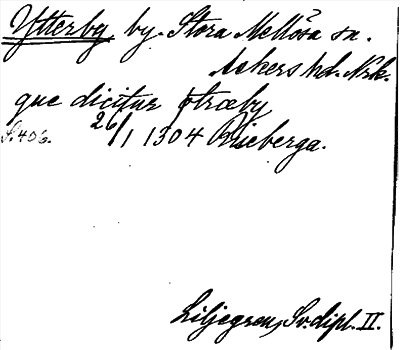 Ytterby by. Stora Mellösa sn.
Askers hd. Nrk.
que dicitur ptræby
S. 406. 26/1 1304 Riseberga.
Liljegren, Sv. dipl. II.